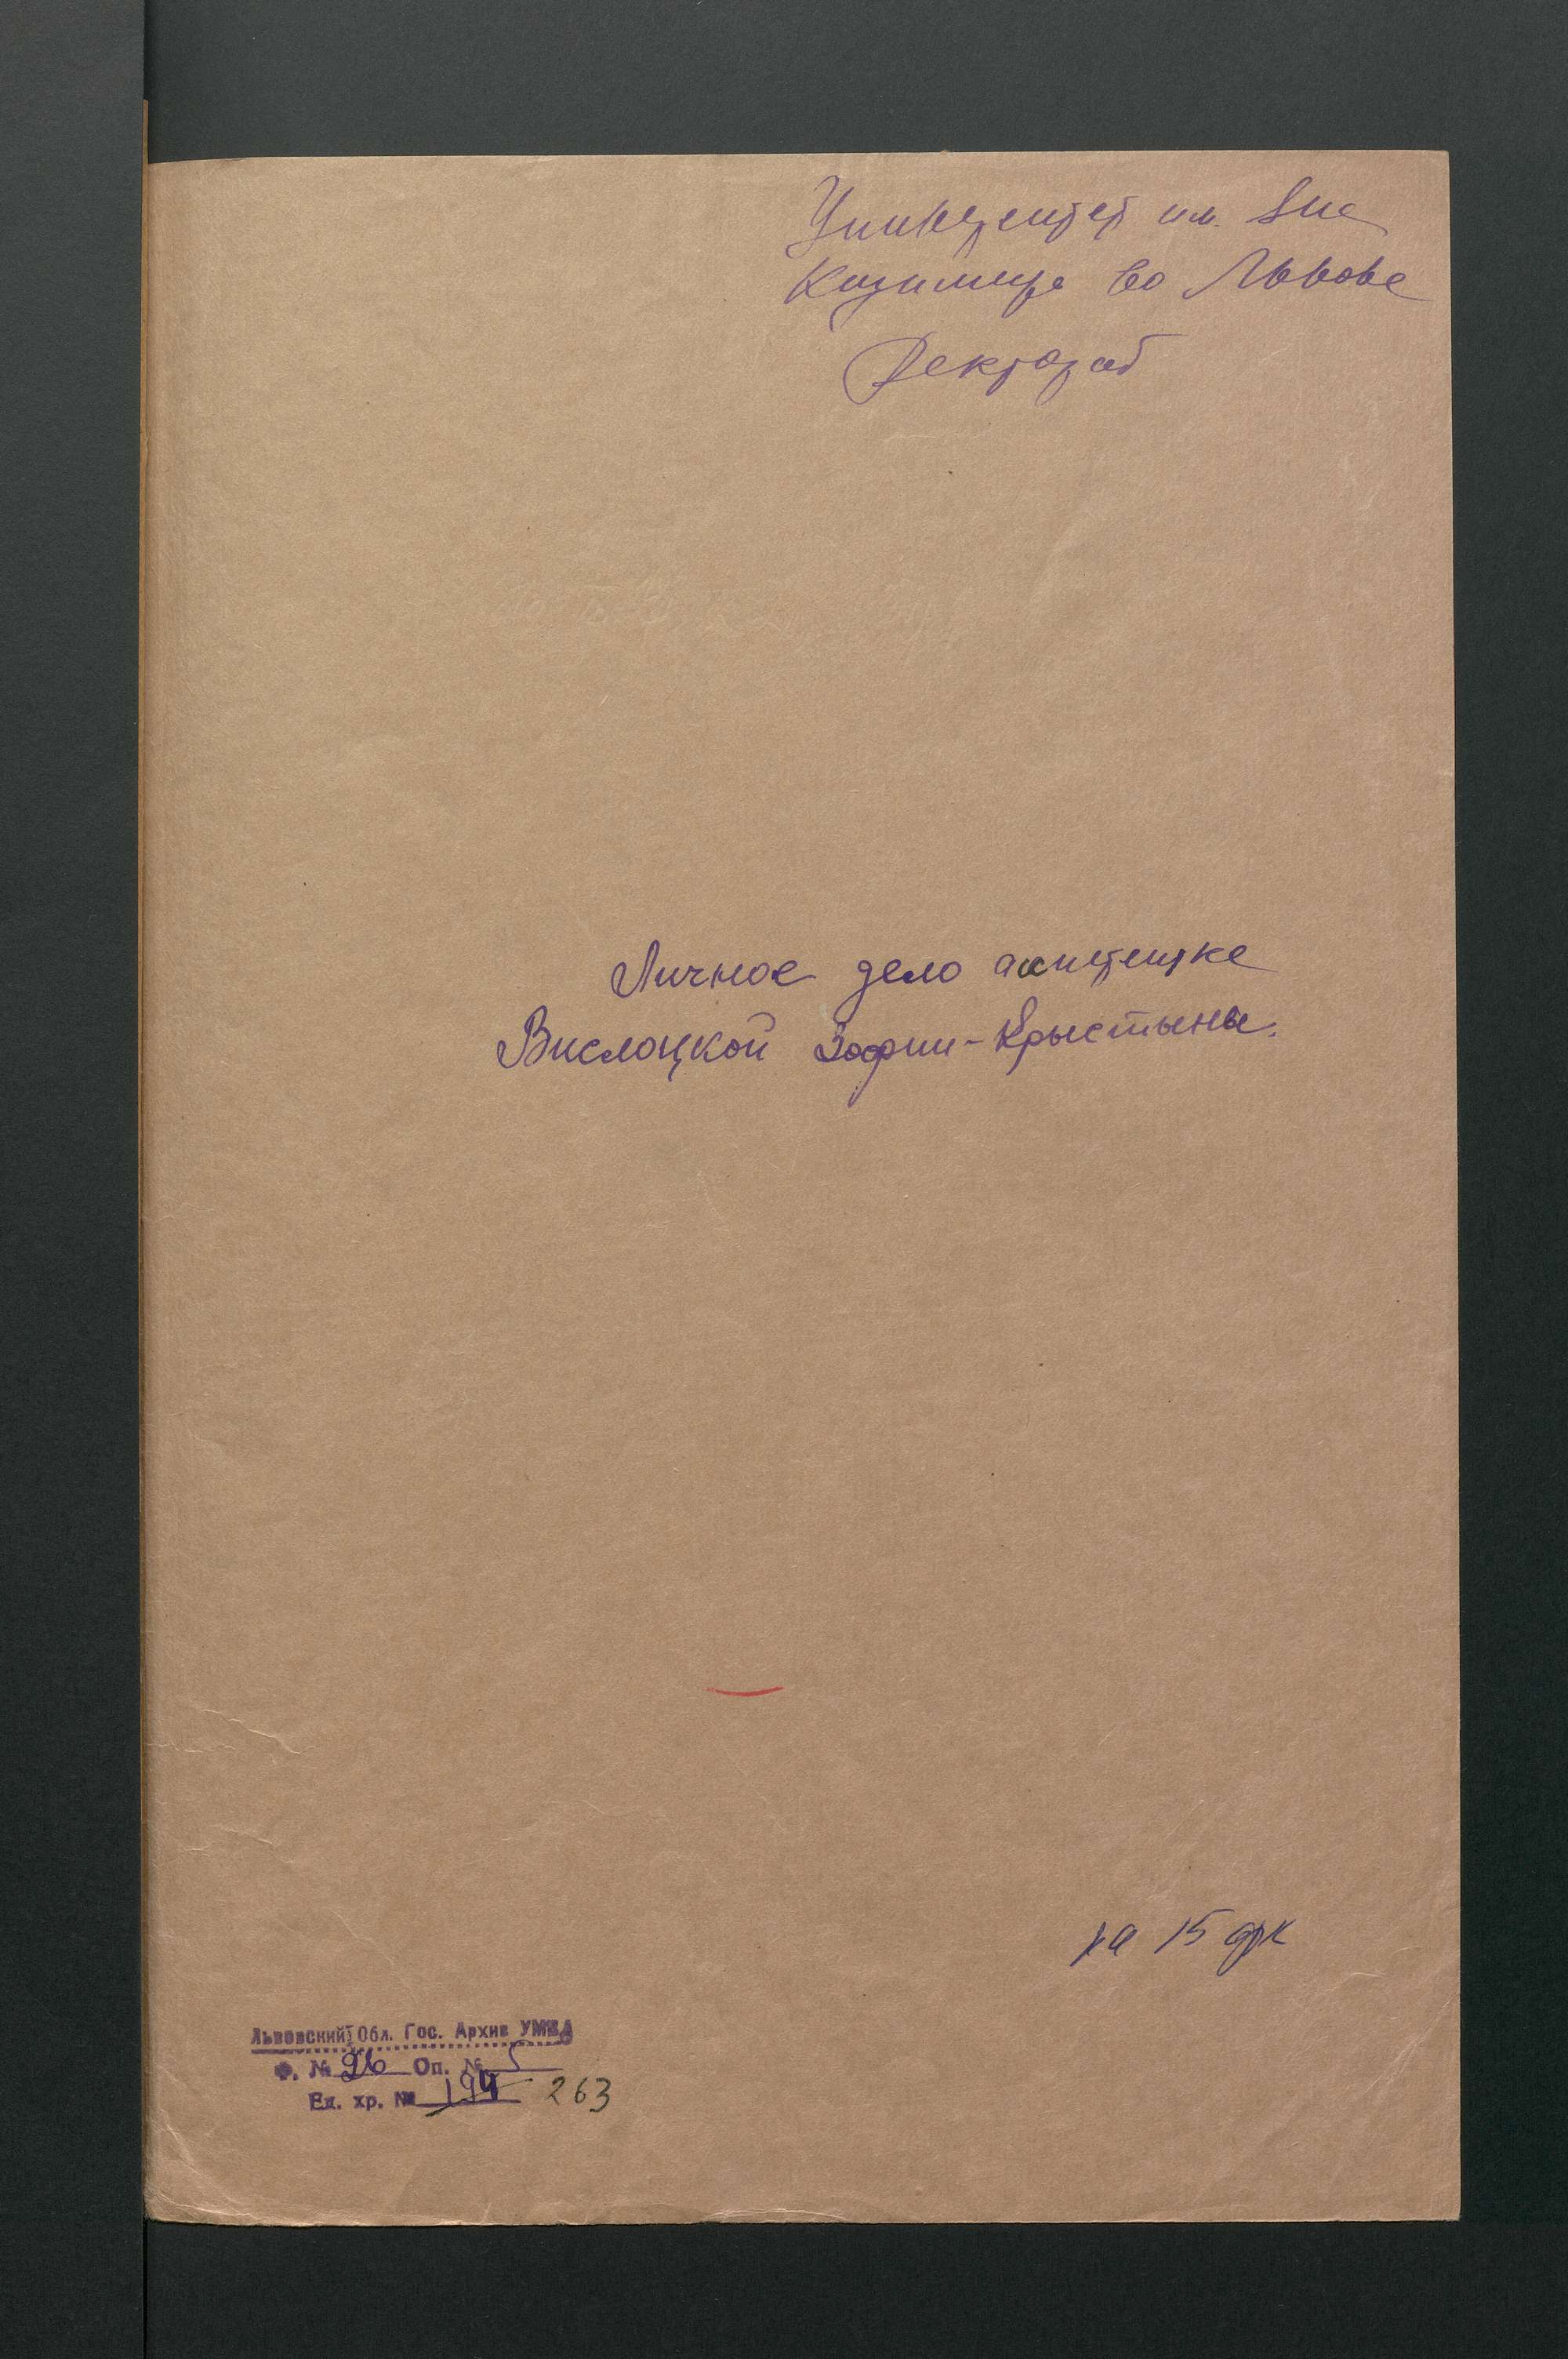 Университет им. Яна
Казимира во Львове
Ректорат
Личное дело ассистентке
Вислоцкой Зофии-Крыстыны.
на 15 арк
Львовский Обл. Гос. Архив УМВД
Ф. № 26 Оп. № 5
Ед. хр. № 194 263